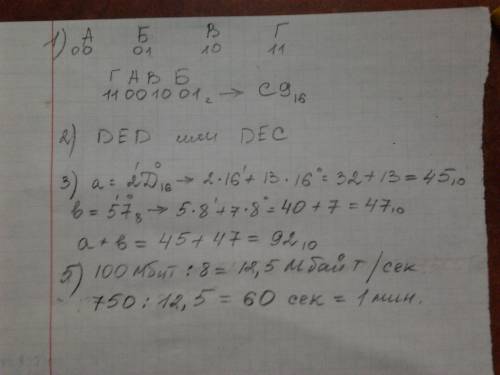 1) А Б В Г
00 01 10 11
Г А В Б
11 00 10 01₂ → C9₁₆
2) DED или DEC
3) a = 2D₁₆ → 2·16¹ + 13·16⁰ = 32 + 13 = 45₁₀
b = 57₈ → 5·8¹ + 7·8⁰ = 40 + 7 = 47₁₀
a + b = 45 + 47 = 92₁₀
5) 100 Мбит : 8 = 12,5 Мбайт/сек
750 : 12,5 = 60 сек = 1 мин.